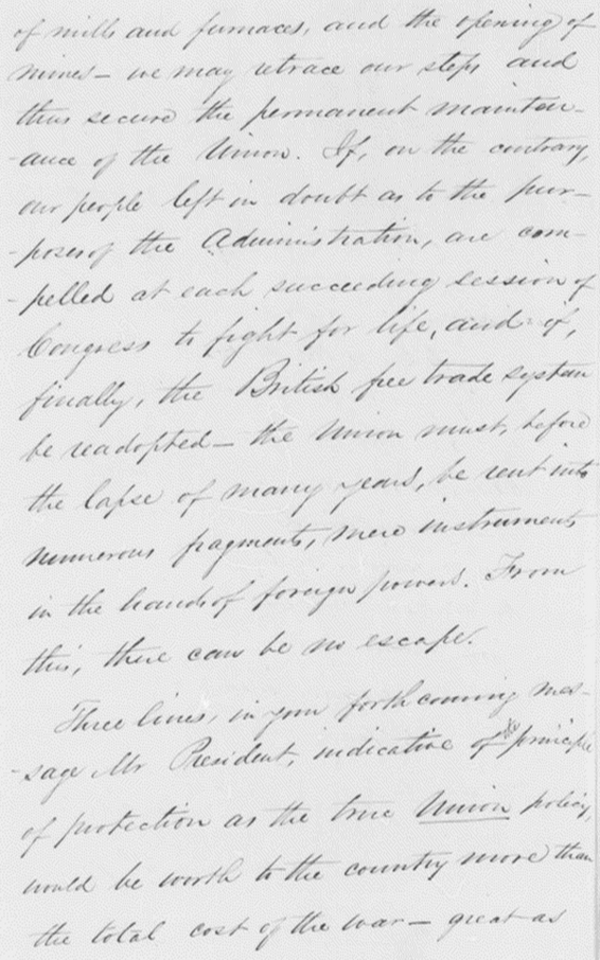 of mills and furnaces, and the opening of
mines— we may retrace our steps and
thus secure the permanent mainten-
-ance of the Union. If, on the contrary,
our people left in doubt as to the pur-
-poses of the Administration, are com-
-pelled at each succeeding session of
Congress to fight for life, and if,
finally, the British free trade system
be readopted— the Union must, before
the lapse of many years, be rent into
numerous fragments, mere instruments
in the hands of foreign powers. From
this, there can be no escape.
Three lines, in your forthcoming mes-
-sage Mr President, indicative of the principle
of protection as the true Union policy,
would be worth to the country more than
the total cost of the war— great as